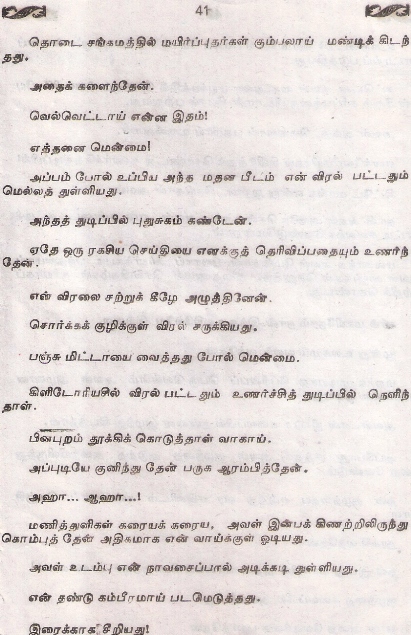 41
தொடை சங்கமத்தில் மயிர்ப்புதர்கள் கும்பலாய் மண்டிக் கிடந்
தது.
அதைக் களைந்தேன்.
வெல்வெட்டாய் என்ன இதம்!
எத்தனை மென்மை!
அப்பம் போல் உப்பிய அந்த மதன பீடம் என் விரல் பட்டதும்
மெல்லத் துள்ளியது.
அந்தத் துடிப்பில் புதுசுகம் கண்டேன்.
ஏதே ஒரு ரகசிய செய்தியை எனக்குத் தெரிவிப்பதையும் உணர்ந்
தேன்.
என் விரலை சற்றுக் கீழே அழுத்தினேன்.
சொர்க்கக் குழிக்குள் விரல் சருக்கியது.
பஞ்சு மிட்டாயை வைத்தது போல் மென்மை.
கிளிடோரியசில் விரல் பட்டதும் உணர்ச்சித் துடிப்பில் நெளிந்
தாள்.
பின்புறம் தூக்கிக் கொடுத்தாள் வாகாய்.
அப்புடியே குனிந்து தேன் பருக ஆரம்பித்தேன்.
அஹா... ஆஹா...!
மணித்துளிகள் கரையக் கரைய, அவள் இன்பக் கிணற்றிலிருந்து
கொம்புத் தேன் அதிகமாக என் வாய்க்குள் ஓடியது.
அவள் உடம்பு என் நாவசைப்பால் அடிக்கடி துள்ளியது.
என் தண்டு கம்பீரமாய் படமெடுத்தது.
இரைக்காக சீறியது!